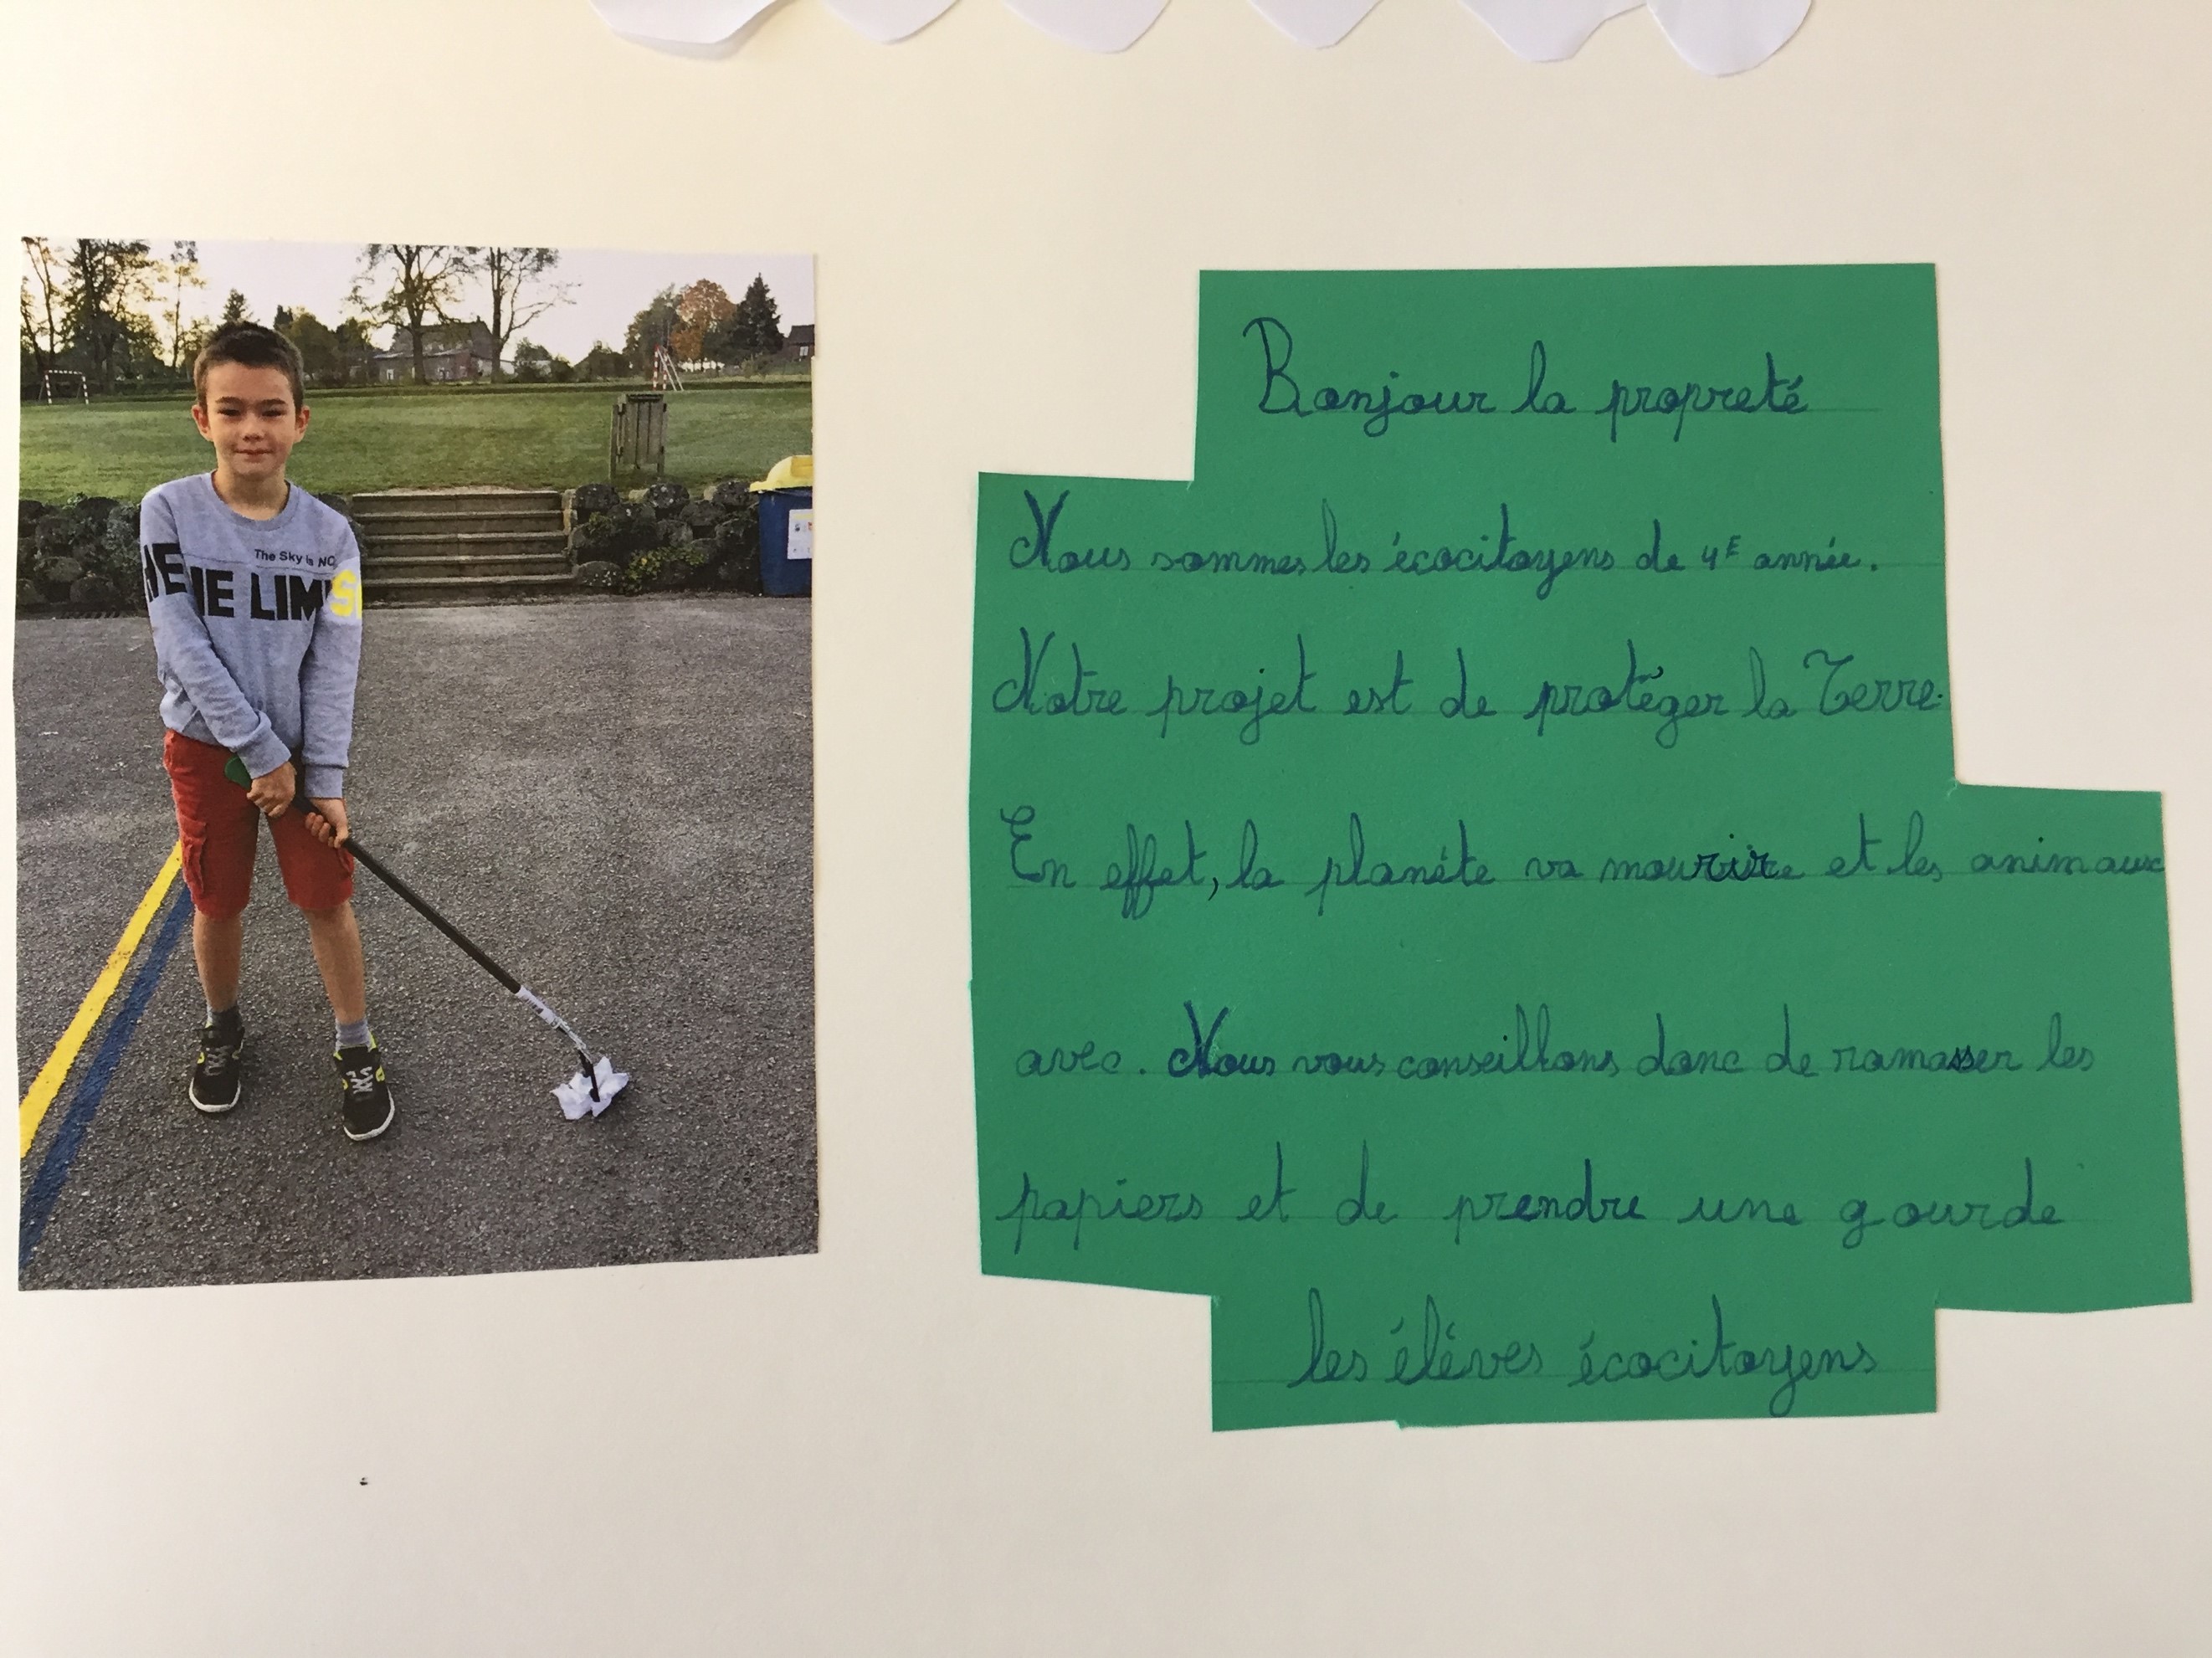 The Sky is NO
HE HE LIMI S
Bonjour la propreté
Nous sommes les écocitoyens de 4E année.
Notre projet est de protéger la Terre.
En effet, la planéte va mourire et les animaux
avec. Nous vous conseillons donc de ramasser les
papiers et de prendre une gourde
les éléves écocitoyens